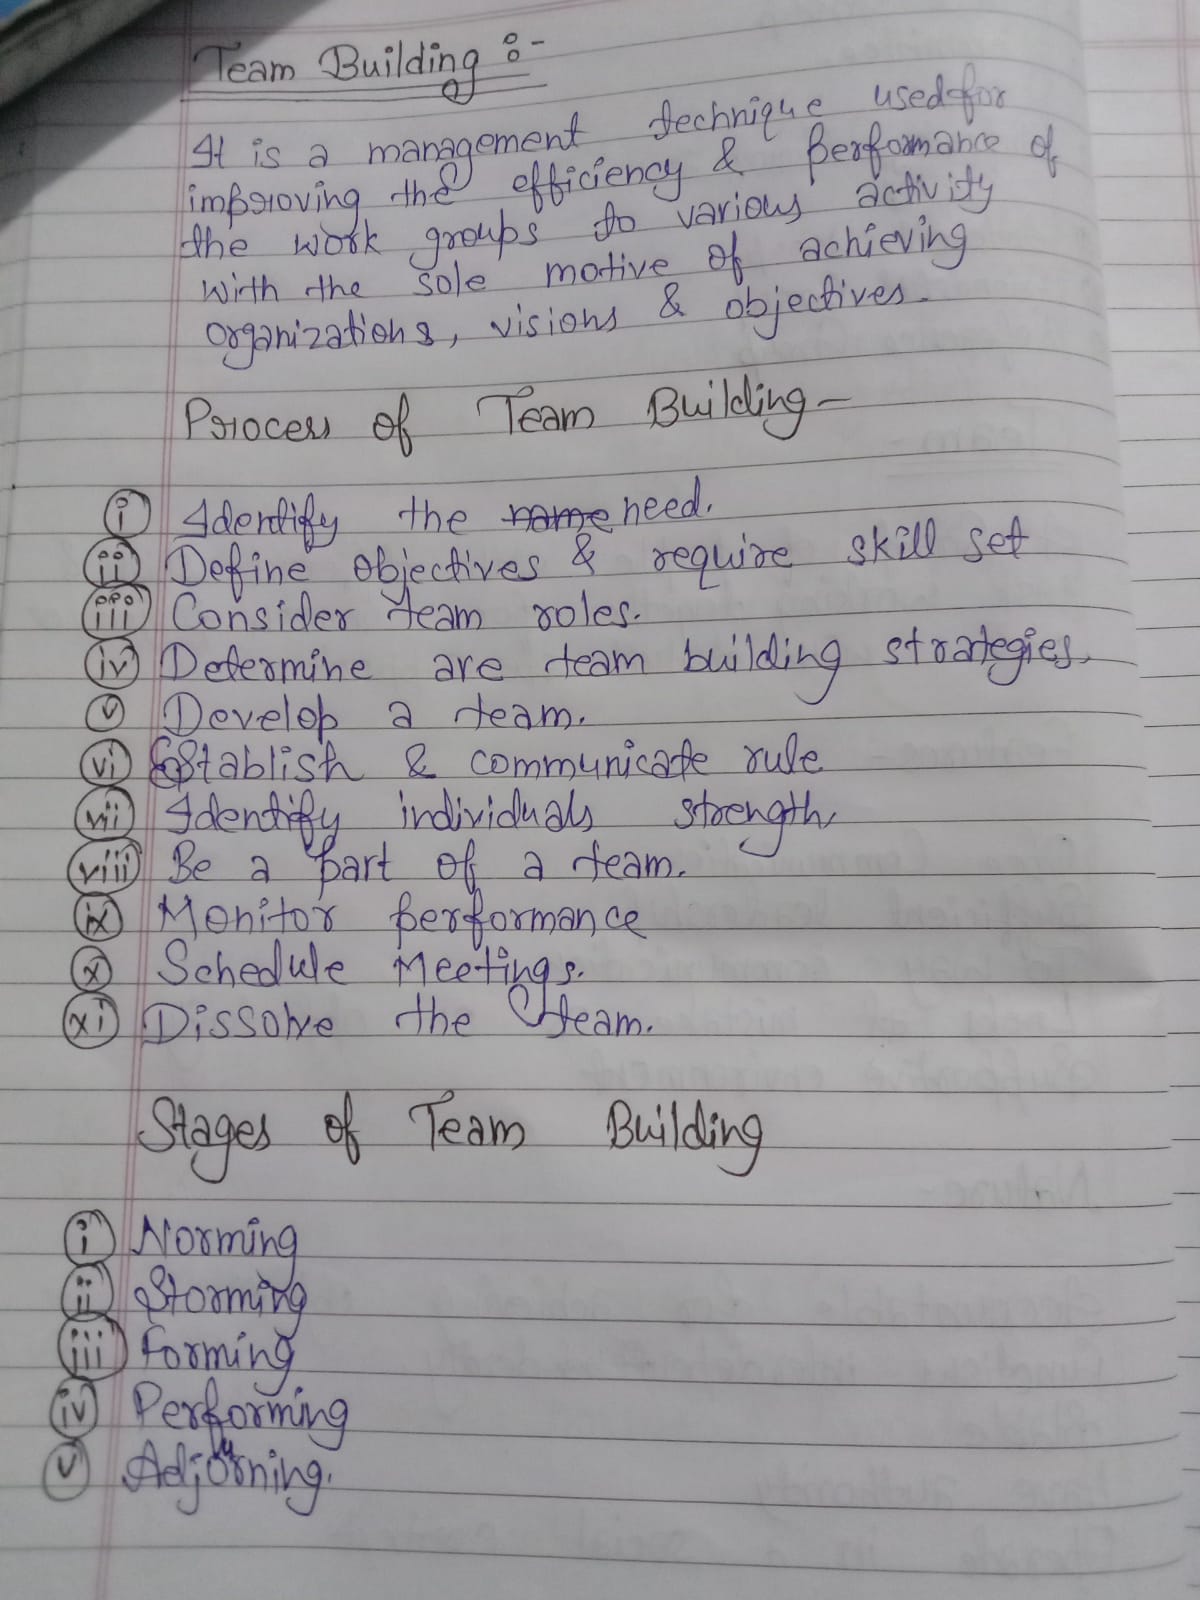 Team Building :-
It is a management technique used for
improving the efficiency & performance of
the work groups to various activity
with the sole motive of achieving
organizations, visions & objectives.
Process of Team Building -
i Identify the name need.
ii Define objectives & require skill set
iii Consider team roles.
iv Determine are team building strategies.
v Develop a team.
vi Establish & communicate rule
vii Identify individuals strength,
viii Be a part of a team.
ix Monitor performance
x Schedule Meetings.
xi Dissolve the team.
Stages of Team Building
i Norming
ii Storming
iii Forming
iv Performing
v Adjourning.